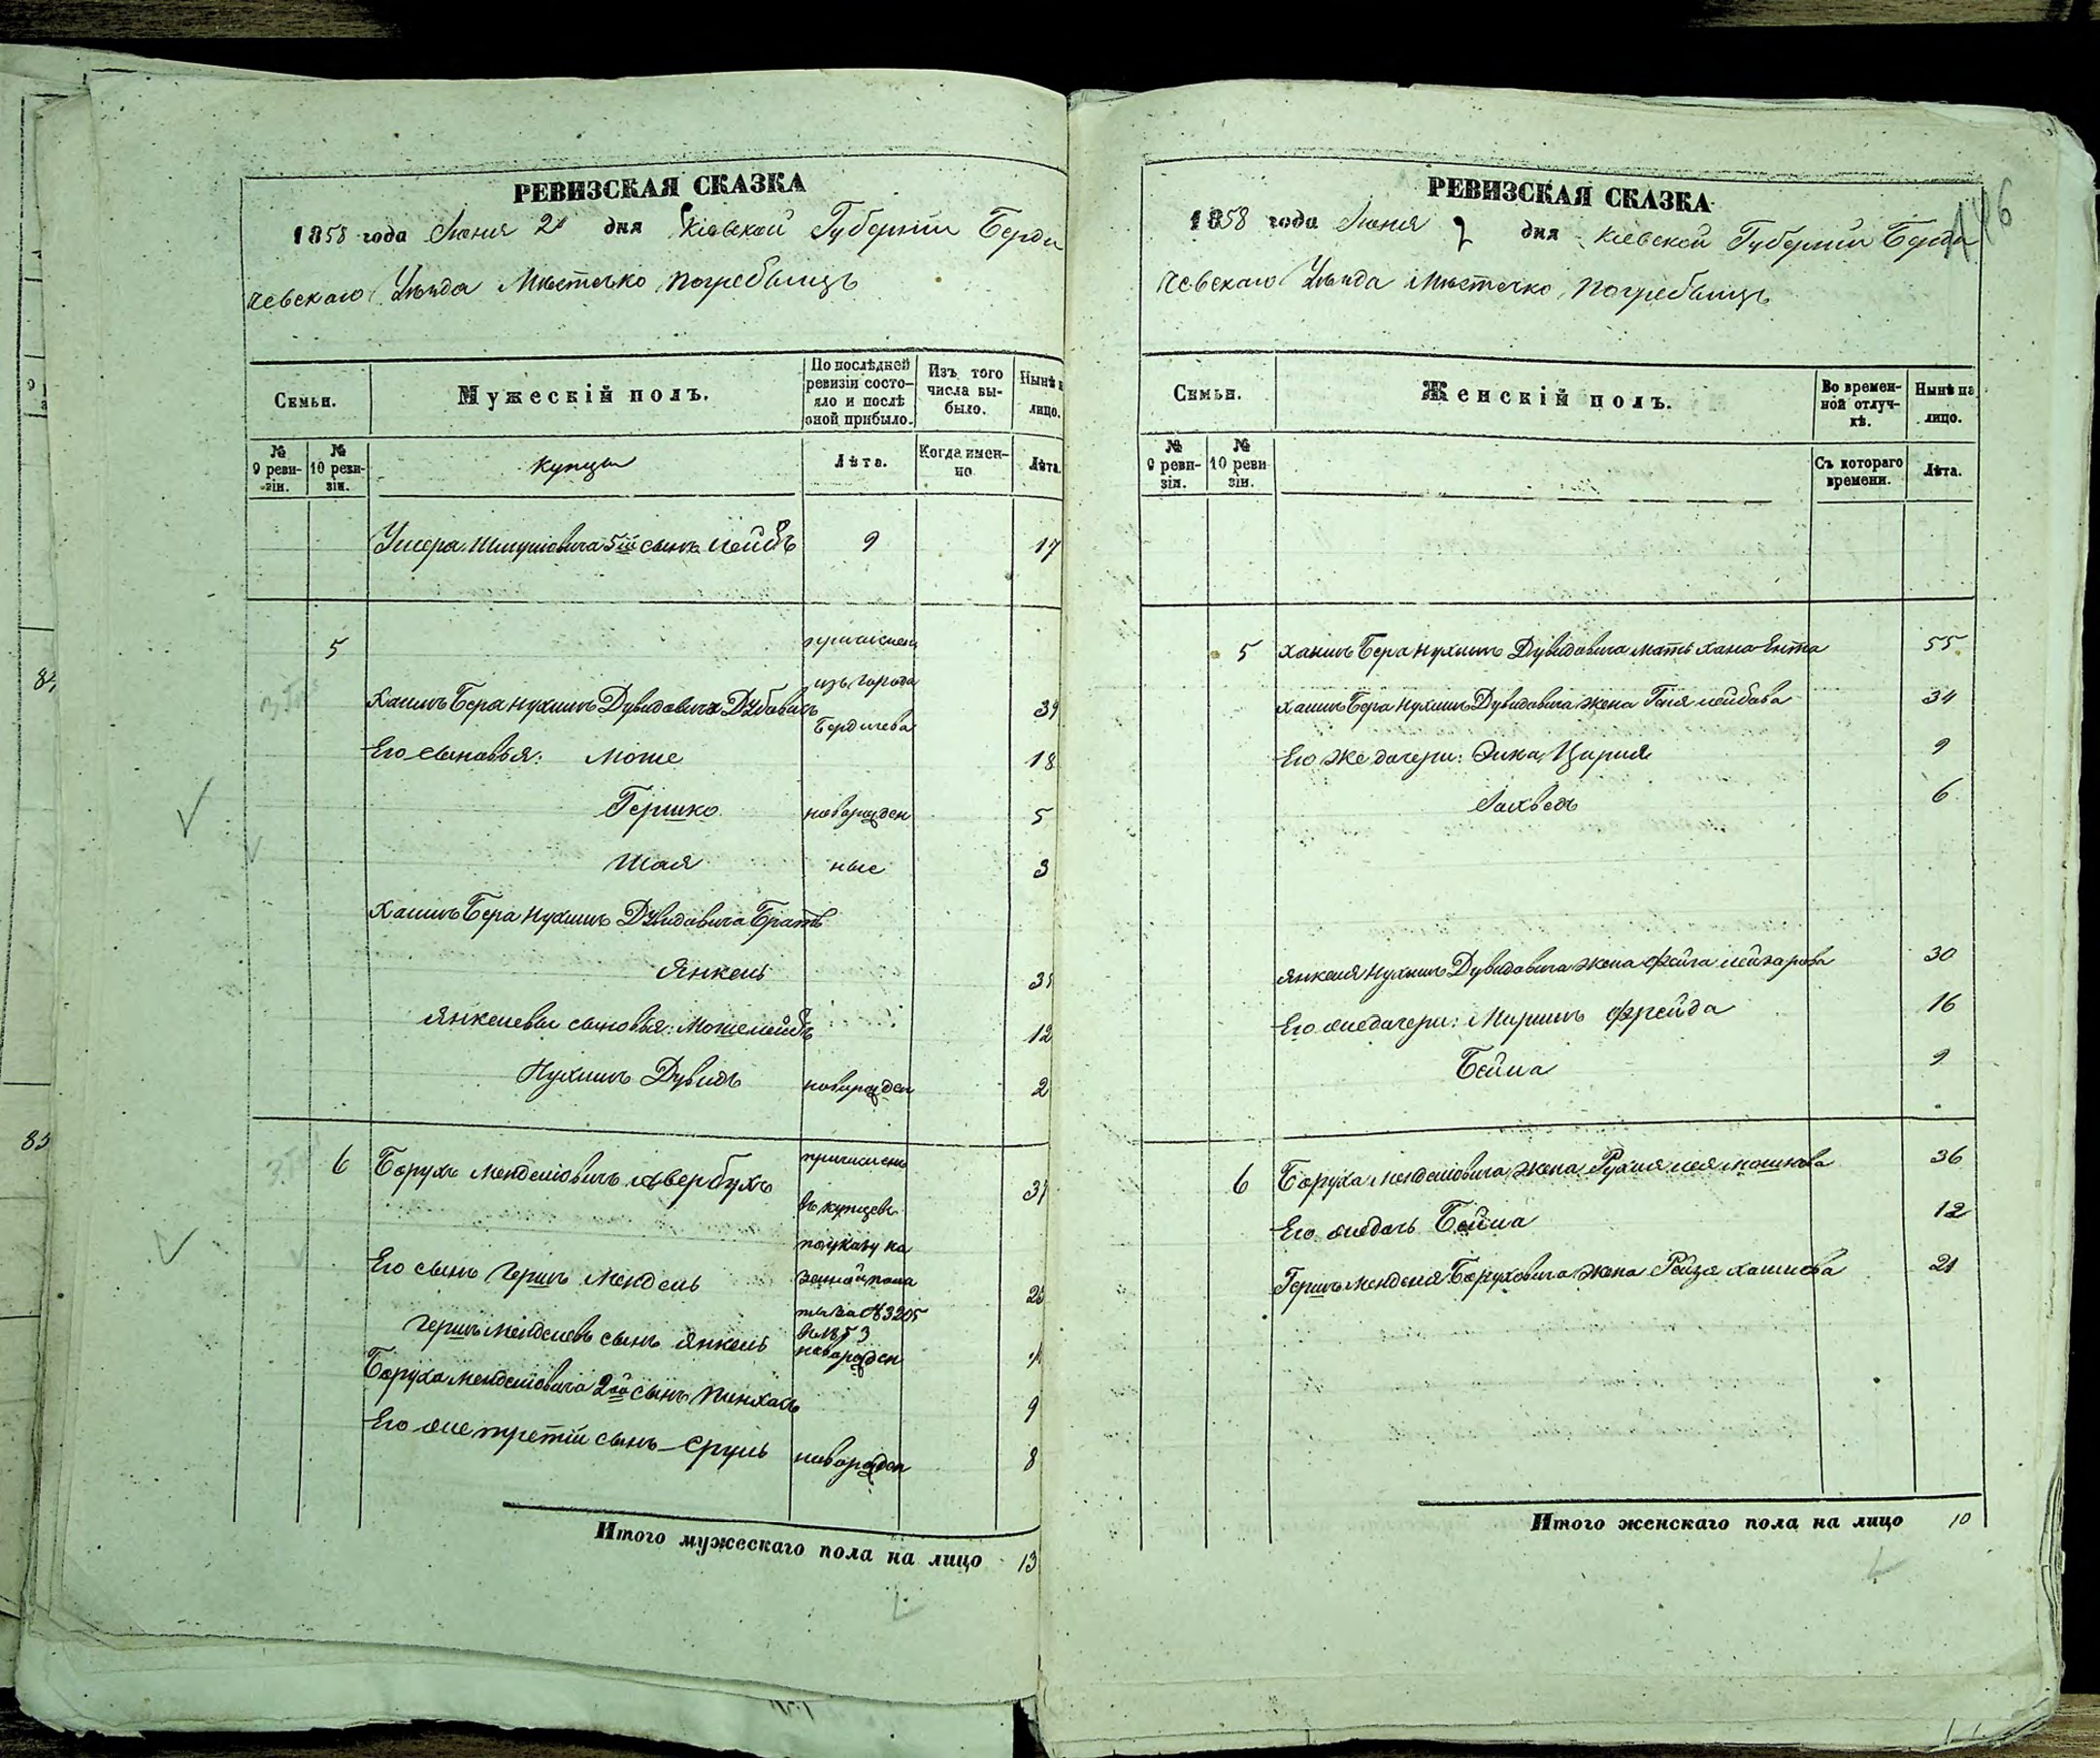 РЕВИЗСКАЯ СКАЗКА
1858 года Июня 2 дня Кіевской Губерніи Берди
чевскаго Уѣзда Мѣстечко Погребыщъ
Семьи.
Мужескій полъ.
По послѣдней ревизіи состо-
яло и послѣ оной прибыло.
Изъ того числа вы-
было.
Нынѣ на лицо.
№ 9 реви-
зіи.
№ 10 реви-
зіи.
Купцы
Лѣта.
Когда имен-
но.
Лѣта.
Ушера Шмулiовича 5ій сынъ Лейбъ 9 17
5 причислен
изъ города
Хаимъ Бера Нухимъ Дувидовичъ Дубовисъ 39
Бердичева
Его сыновья: Моше 18
Гершко новорожден 5
Шая ные 3
Хаимъ Бера Нухимъ Дувидовича Братъ
Янкель 35
Янкелевы сыновья: Мошелейбъ 12
Нухимъ Дувидъ новорожден 2
6 Борухъ Менделіовичъ Авербухъ причисленъ 37
въ купцы
по указу ка
Его сынъ Гершъ Мендель зенной пала 20
ты за №3205
въ 1853
Гершъ Менделевъ сынъ Янкель новорожден
Боруха Менделіовича 2ой сынъ Пинхасъ 9
Его же третій сынъ Сруль новорожден 8
Итого мужескаго пола на лицо 13
146
РЕВИЗСКАЯ СКАЗКА
1858 года Июня 2 дня Кіевской Губерніи Берди
чевскаго Уѣзда Мѣстечко Погребыщъ
Семьи.
Женскій полъ.
Во времен-
ной отлуч-
кѣ.
Нынѣ на лицо.
№ 9 реви-
зіи.
№ 10 реви
зіи.
Съ котораго времени.
Лѣта.
5 Хаимъ Бера Нухимъ Дувидовича мать Хана Ента 55
Хаимъ Бера Нухимъ Дувидовича жена Геня Лейбова 34
Его же дочери: Эшка Цирля 9
Иохведъ 6
Янкеля Нухимъ Дувидовича жена Фейга Лейзарова 30
Его же дочери: Миримъ Фрейда 16
Бейла 9
6 Боруха Менделіовича жена Рухля Лея Мошкова 36
Его же дочь Бейла 12
Гершъ Менделя Боруховича жена Рейзя Хаимова 21
Итого женскаго пола на лицо 10